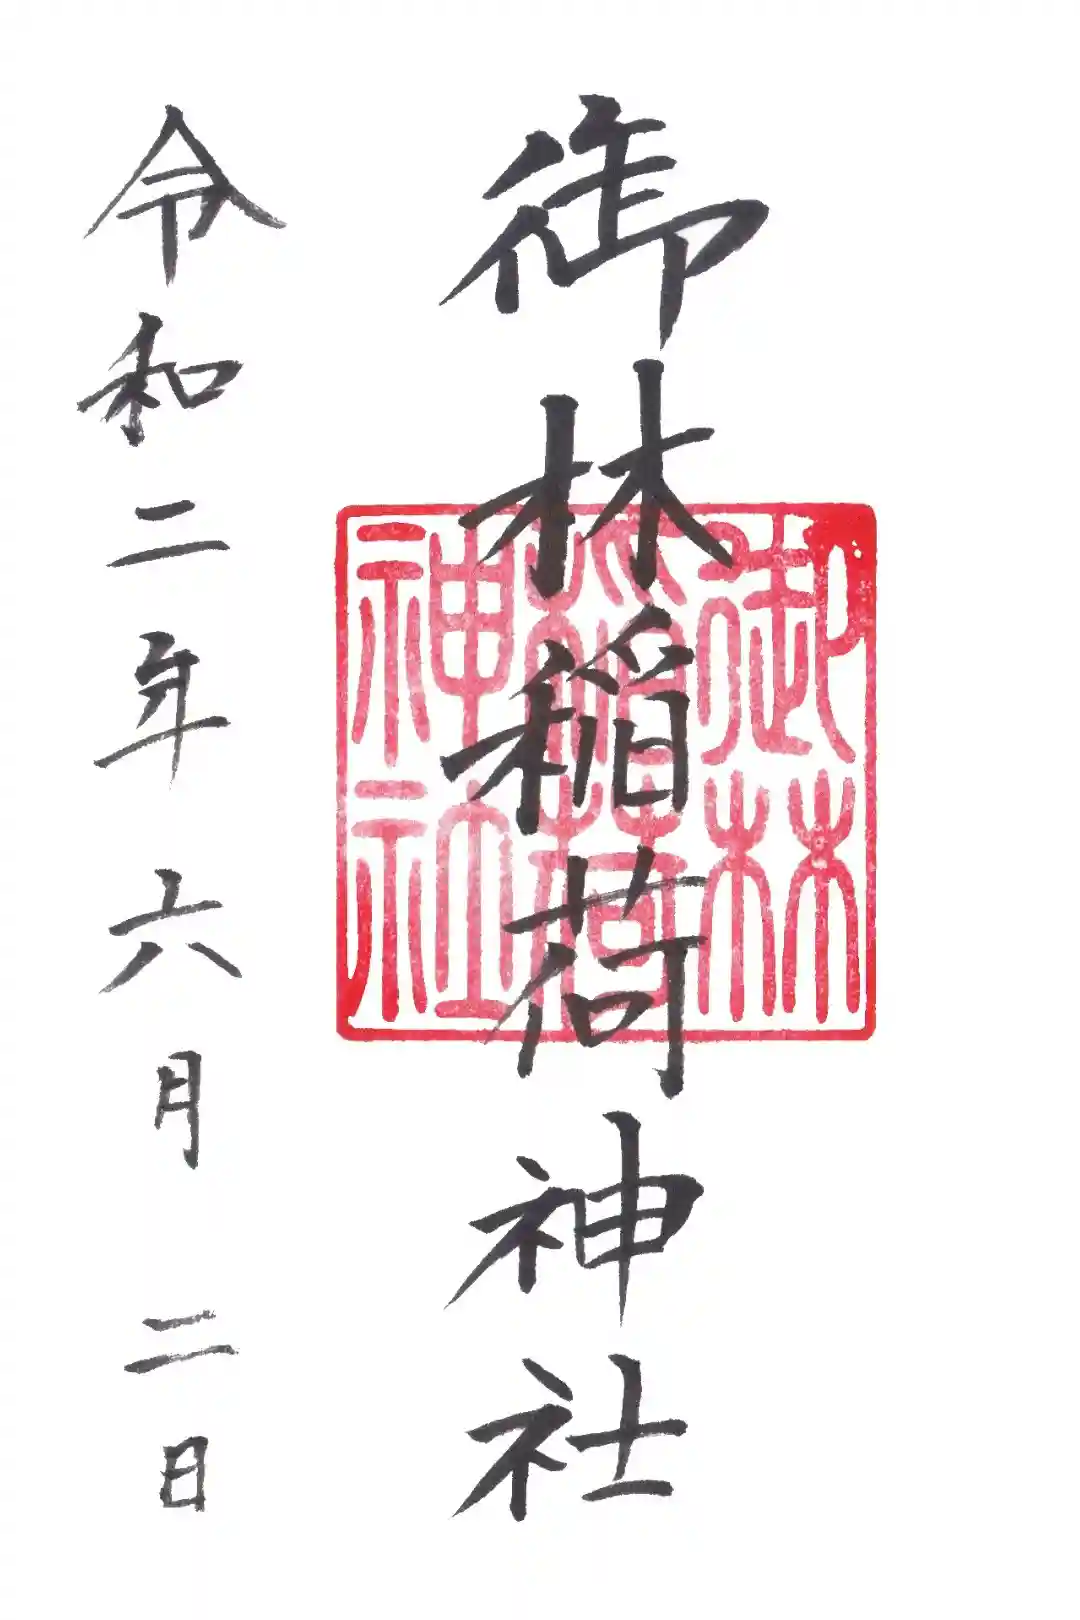 御林稲荷神社
御林
稲荷
神社
令和二年六月二日